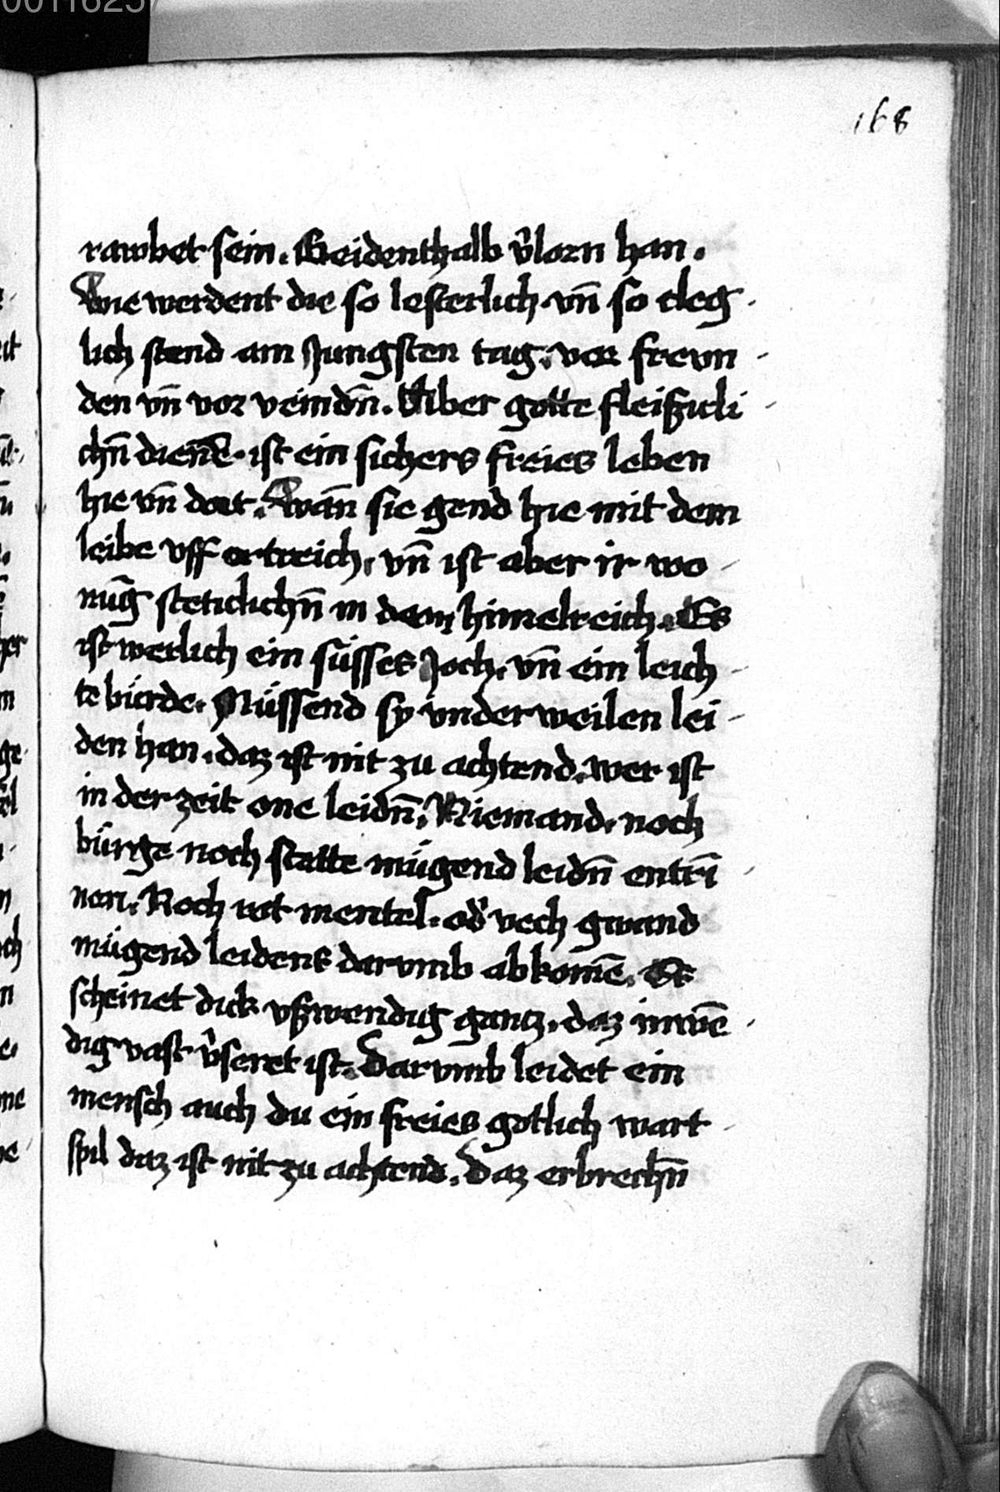 168
rawbet sein. Beidenthalb v̉lorn han.
Wie werdent die so lesterlich vn̄ so cleg-
lich stend am Jungsten tag. vor freun-
den vn̄ vor veindn̄. Aber gotte fleißicli-
chn̄ dienē. ist ein sichers freies leben
hie vn̄ dort. Wān sie gend hie mit dem
leibe vff ertreich, vn̄ ist aber ir wo-
nūg steticlichn̄ in dem himelreich. Es
ist werlich ein süsses Joch. vn̄ ein leich-
te bürde. Müssend sy vnderweilen lei-
den han. daz ist nit zu achtend. wer ist
in der zeit one leidn̄. Niemand. noch
bürge noch statte mügend leidn̄ entrī-
nen. Noch rot mentel. od̉ vech gwand
mügend leidens darvmb abkomē. Es
scheinet dick vßwendig gantz. daz inwē-
dig vast v̉seret ist. Darvmb leidet ein
mensch auch du ein freies gotlich wart-
spil daz ist nit zu achtend. Daz erbrechn̄